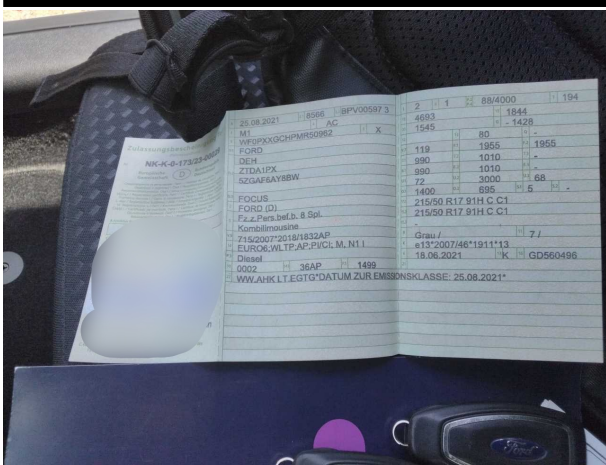 Zulassungsbesch
NK-K-0-173/23-00026
25.08.2021 8566 BPV00597 3
M1 AC
WF0PXXGCHPMR50962 X
FORD
DEH
ZTDA1PX
5ZGAF6AY8BW
FOCUS
FORD (D)
Fz.z.Pers.bef.b. 8 Spl.
Kombilimousine
715/2007*2018/1832AP
EURO6;WLTP;AP;PI/CI; M, N1 I
Diesel
0002 36AP 1499
WW.AHK LT.EGTG*DATUM ZUR EMISSIONSKLASSE: 25.08.2021*
2 1 88/4000 194
4693 1844
1545 - 1428
80 -
119 1955 1955
990 1010 -
990 1010 -
72 3000 68
1400 695 5 -
215/50 R17 91H C C1
215/50 R17 91H C C1
-
Grau / 7 /
e13*2007/46*1911*13
18.06.2021 K GD560496
Ford